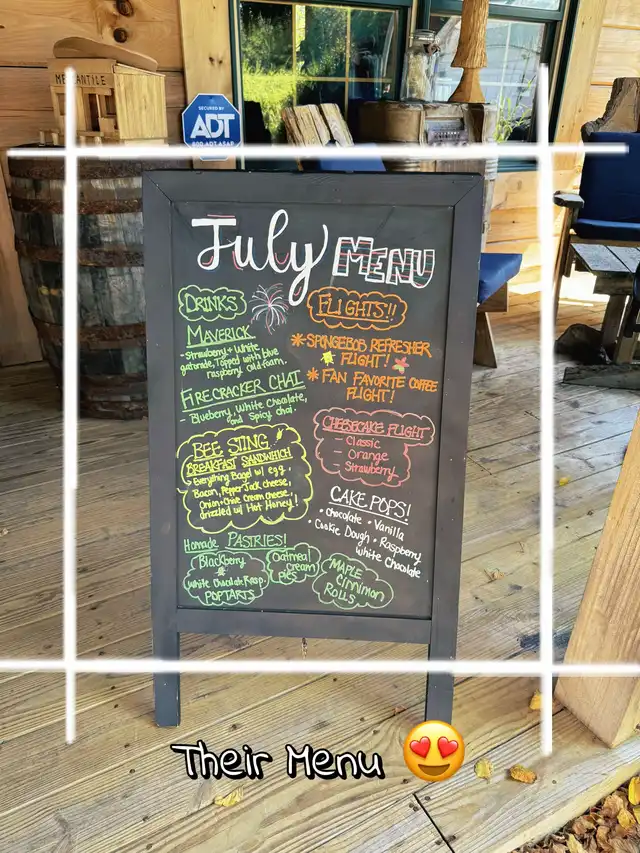 MERCANTILE
SECURED BY
ADT
800 ADT ASAP
July MENU
DRINKS
MAVERICK
- Strawberry + White
gatorade, Topped with blue
raspberry cold foam.
FIRECRACKER CHAI
- Blueberry, White Chocolate,
and Spicy chai.
BEE STING
BREAKFAST SANDWHICH
• Everything Bagel w/ egg,
Bacon, Pepper Jack cheese,
Onion + Chive Cream cheese,
drizzled w/ Hot Honey!
Homade PASTRIES!
Blackberry
&
White Chocolate Rasp.
POPTARTS
Oatmeal
cream
pies
MAPLE
Cinnimon
ROLLS
FLIGHTS!!
* SPONGEBOB REFRESHER
FLIGHT!
* FAN FAVORITE COFFEE
FLIGHT!
CHEESECAKE FLIGHT
- Classic
- Orange
- Strawberry
CAKE POPS!
• Chocolate • Vanilla
• Cookie Dough • Raspberry
White Chocolate
Their Menu 😍